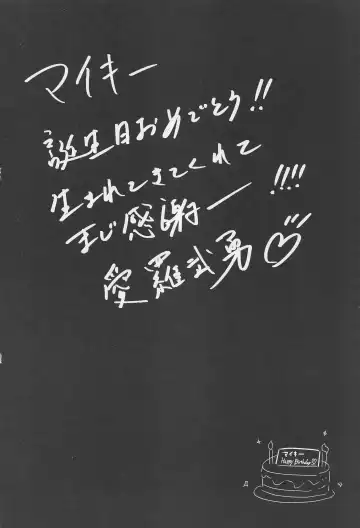 マイキー
誕生日おめでとう!!
生まれてきてくれて
まじ感謝ー!!!!
愛羅武勇♡
マイキー
Happy Birthday♡